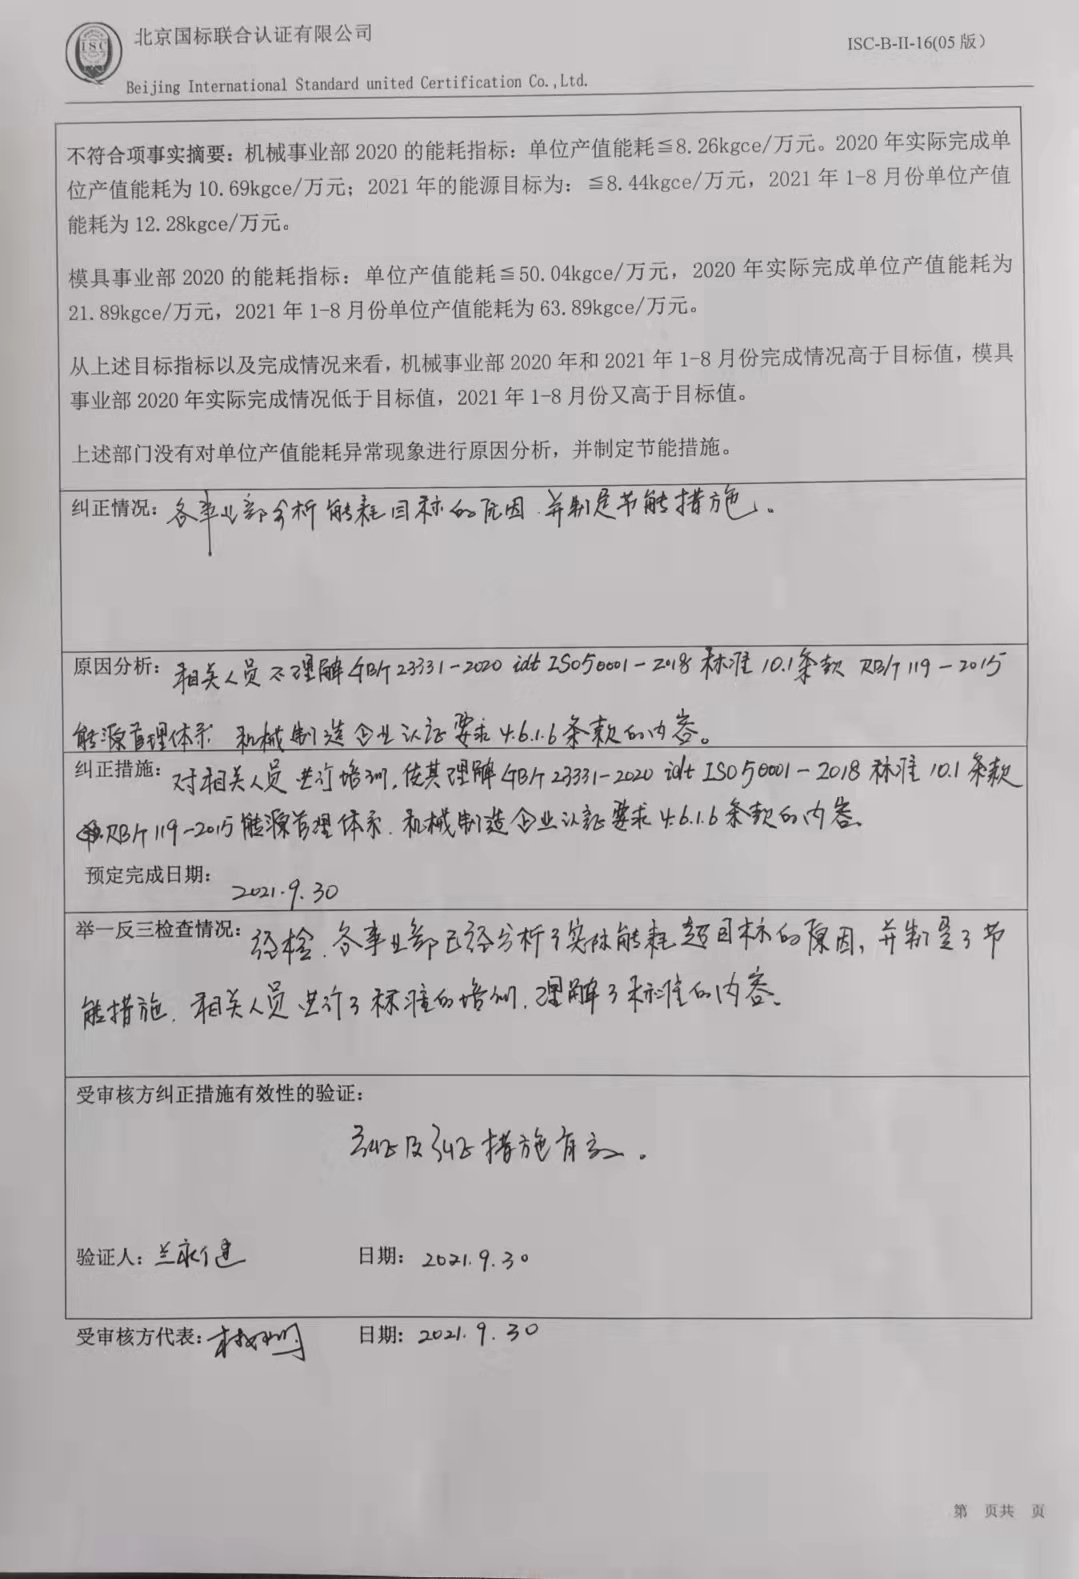 北京国标联合认证有限公司
ISC-B-II-16(05版)
ISC
Beijing International Standard united Certification Co.,Ltd.
不符合项事实摘要：机械事业部2020的能耗指标：单位产值能耗≦8.26kgce/万元。2020年实际完成单
位产值能耗为10.69kgce/万元；2021年的能源目标为：≦8.44kgce/万元，2021年1-8月份单位产值
能耗为12.28kgce/万元。
模具事业部2020的能耗指标：单位产值能耗≦50.04kgce/万元，2020年实际完成单位产值能耗为
21.89kgce/万元，2021年1-8月份单位产值能耗为63.89kgce/万元。
从上述目标指标以及完成情况来看，机械事业部2020年和2021年1-8月份完成情况高于目标值，模具
事业部2020年实际完成情况低于目标值，2021年1-8月份又高于目标值。
上述部门没有对单位产值能耗异常现象进行原因分析，并制定节能措施。
纠正情况：各事业部分析能耗目标的原因，并制定节能措施。
原因分析：相关人员不理解GB/T 23331-2020 idt ISO50001-2018标准10.1条款 RB/T 119-2015
能源管理体系 机械制造企业认证要求4.6.1.6条款的内容。
纠正措施：对相关人员进行培训，使其理解GB/T 23331-2020 idt ISO50001-2018标准10.1条款
RB/T 119-2015能源管理体系 机械制造企业认证要求4.6.1.6条款的内容。
预定完成日期：2021.9.30
举一反三检查情况：经检，各事业部已经分析了实际能耗超目标的原因，并制定了节
能措施，相关人员进行了标准的培训，理解了标准的内容。
受审核方纠正措施有效性的验证：
纠正及纠正措施有效。
验证人：兰永健 日期：2021.9.30
受审核方代表： 日期：2021.9.30
第 页共 页